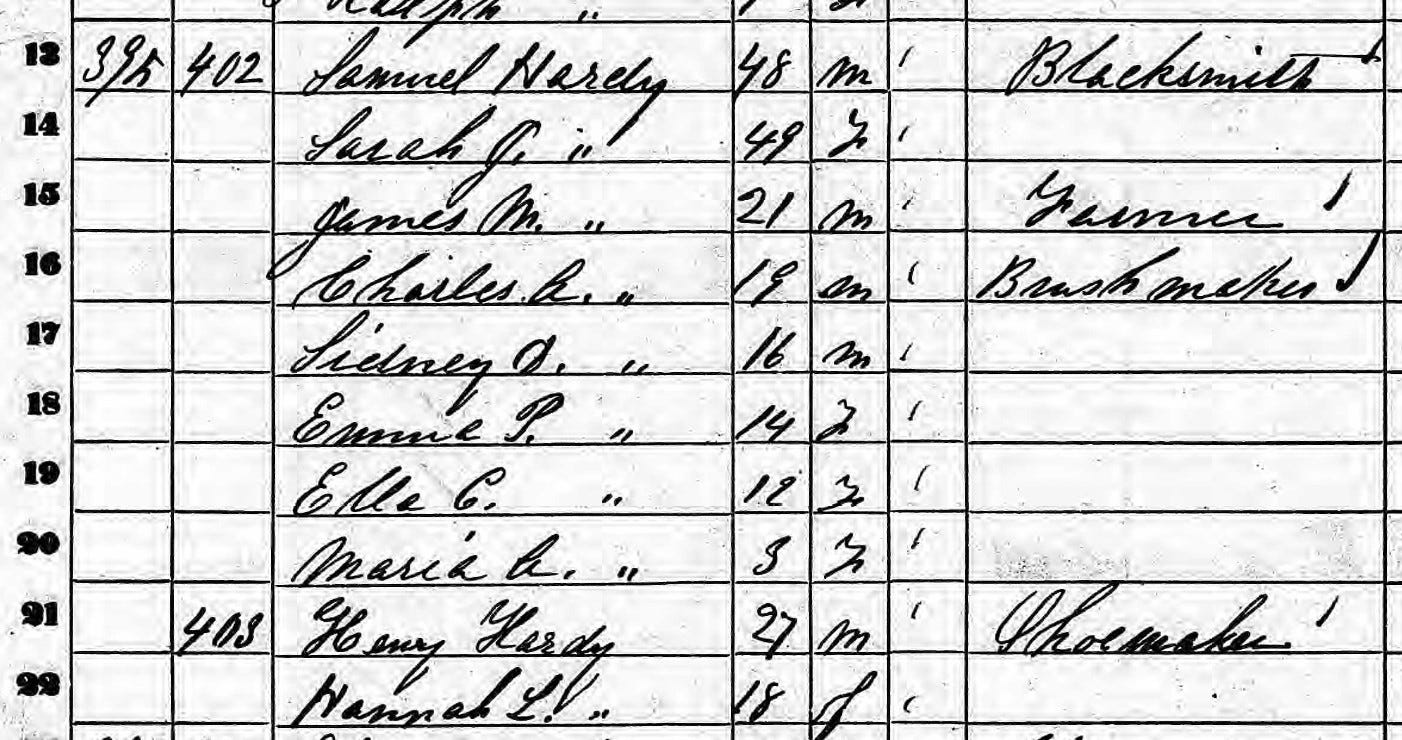 Ralph "
13 395 402 Samuel Hardy 48 m ' Blacksmith
14 Sarah J. " 49 F '
15 James M. " 21 m ' Farmer
16 Charles A. " 19 m ' Brushmaker
17 Sidney D. " 16 m '
18 Emma P. " 14 F '
19 Ella C. " 12 F '
20 Maria A. " 3 F '
21 403 Henry Hardy 27 m ' Shoemaker
22 Hannah L. " 18 f '